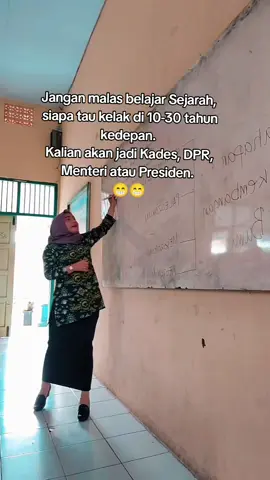 Jangan malas belajar Sejarah,
siapa tau kelak di 10-30 tahun
kedepan.
Kalian akan jadi Kades, DPR,
Menteri atau Presiden.
😁😁